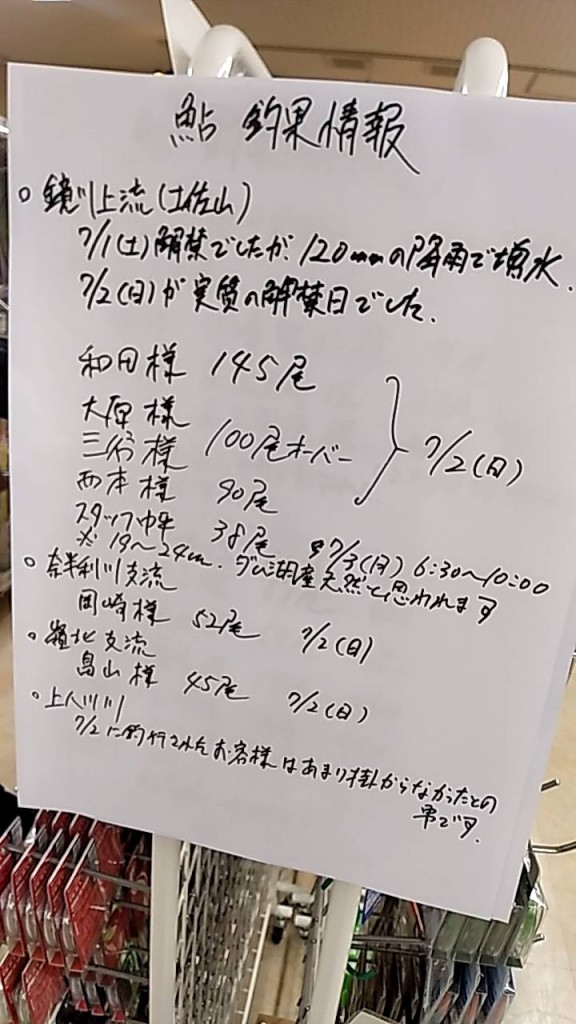 鮎 釣果情報
○鏡川上流(土佐山)
7/1(土)解禁でしたが、120mmの降雨で増水.
7/2(日)が実質の解禁日でした.
和田様 145尾
大原様
三谷様 100尾オーバー
7/2(日)
西本様 90尾
スタッフ中平 38尾 7/3(月) 6:30~10:00
※ 19~24cm. ダム湖産天然と思われます
○奈半利川支流
岡崎様 52尾 7/2(日)
○嶺北支流
畠山様 45尾 7/2(日)
○上八川川
7/2に釣行されたお客様はあまり掛からなかったとの
事です.